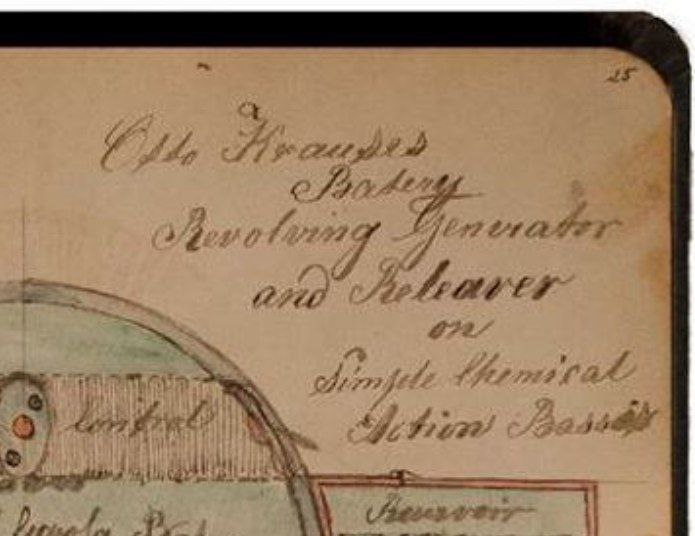 25
Otto Krauses
Batery
Revolving Genviator
and Releaver
on
Simple Chemical
Action Bassis
Control
Reservoir